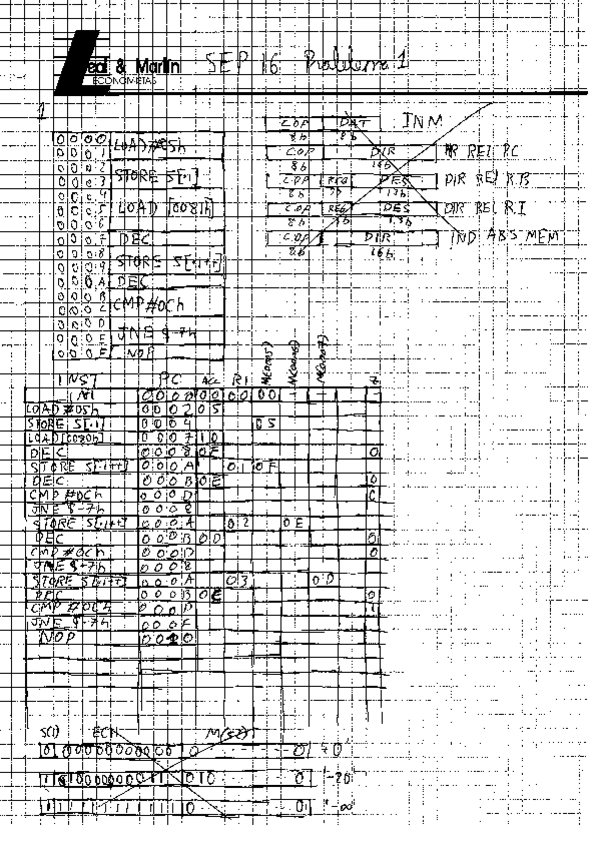 Leal & Martín SEP 16 Problema 1
ECONOMETAS
1
COP DAT INM
8b 8b
COP DIR DIR REL PC
8b 16b
COP REG DES DIR REL RB
COP REG DES DIR REL RI
COP DIR IND ABS MEM
8b 16b
0000 LOAD #05h
0001
0002 STORE 5[.1]
0003
0004 LOAD [0081h]
0005
0006
0007 DEC
0008 STORE 5[.1++]
0009
000A DEC
000B CMP #0Ch
000C
000D JNE $-7h
000E
000F NOP
INST PC ACC RI M(0005) M(0006) M(0007) Z
INI 0000 00 00 00 - - -
LOAD #05h 0002 05
STORE 5[.1] 0004 05
LOAD [0080h] 0007 10
DEC 0008 0F 0
STORE 5[.1++] 000A 01 0F
DEC 000B 0E 0
CMP #0Ch 000D 0
JNE $-7h 0008
STORE 5[.1++] 000A 02 0E
DEC 000B 0D 0
CMP #0Ch 000D 0
JNE $-7h 0008
STORE 5[.1++] 000A 03 0D
DEC 000B 0C 0
CMP #0Ch 000D 1
JNE $-7h 000F
NOP 0010
S(1) M(52)
0 0 "+0"